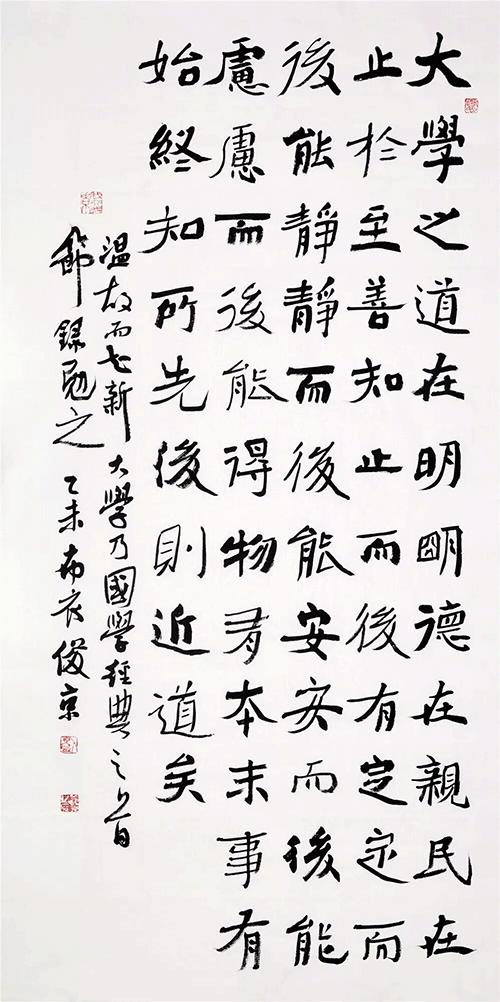 大學之道在明明德在親民在
止於至善知止而後有定定而
後能靜靜而後能安安而後能
慮慮而後能得物有本末事有
始終知所先後則近道矣
溫故而知新大學乃國學經典之首
節錄勉之 乙未 布衣俊京